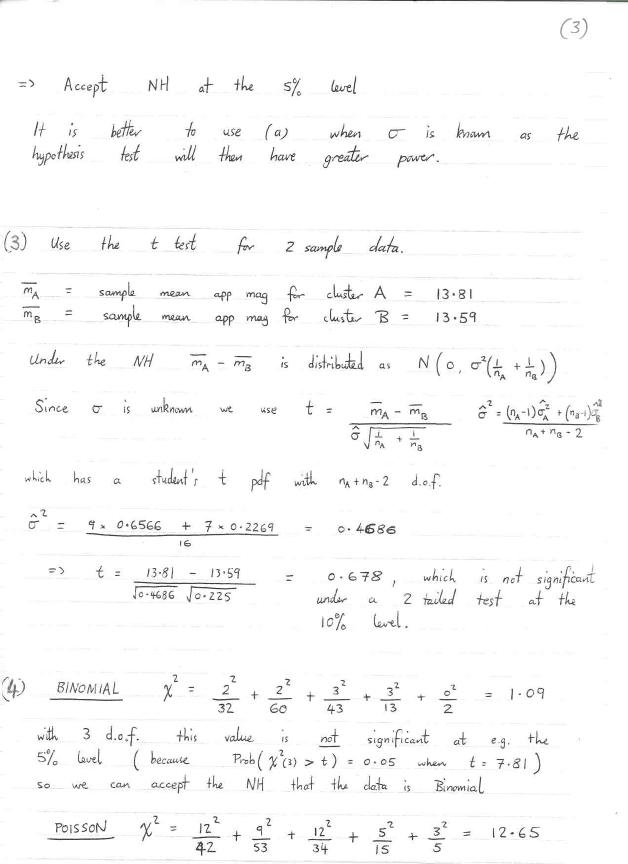 (3)
=> Accept NH at the 5% level
It is better to use (a) when σ is known as the
hypothesis test will then have greater power.
(3) Use the t test for 2 sample data.
m̅_A = sample mean app mag for cluster A = 13.81
m̅_B = sample mean app mag for cluster B = 13.59
Under the NH m̅_A - m̅_B is distributed as N(0, σ²(1/n_A + 1/n_B))
Since σ is unknown we use t = (m̅_A - m̅_B) / (σ̂ √(1/n_A + 1/n_B)) σ̂² = ((n_A-1)σ̂_A² + (n_B-1)σ̂_B²) / (n_A + n_B - 2)
which has a student's t pdf with n_A + n_B - 2 d.o.f.
σ̂² = (9 × 0.6566 + 7 × 0.2269) / 16 = 0.4686
=> t = (13.81 - 13.59) / (√0.4686 √0.225) = 0.678, which is not significant
under a 2 tailed test at the
10% level.
(4) BINOMIAL χ² = 2²/32 + 2²/60 + 3²/43 + 3²/13 + 0²/2 = 1.09
with 3 d.o.f. this value is not significant at e.g. the
5% level (because Prob(χ²(3) > t) = 0.05 when t = 7.81)
so we can accept the NH that the data is Binomial
POISSON χ² = 12²/42 + 9²/53 + 12²/34 + 5²/15 + 3²/5 = 12.65